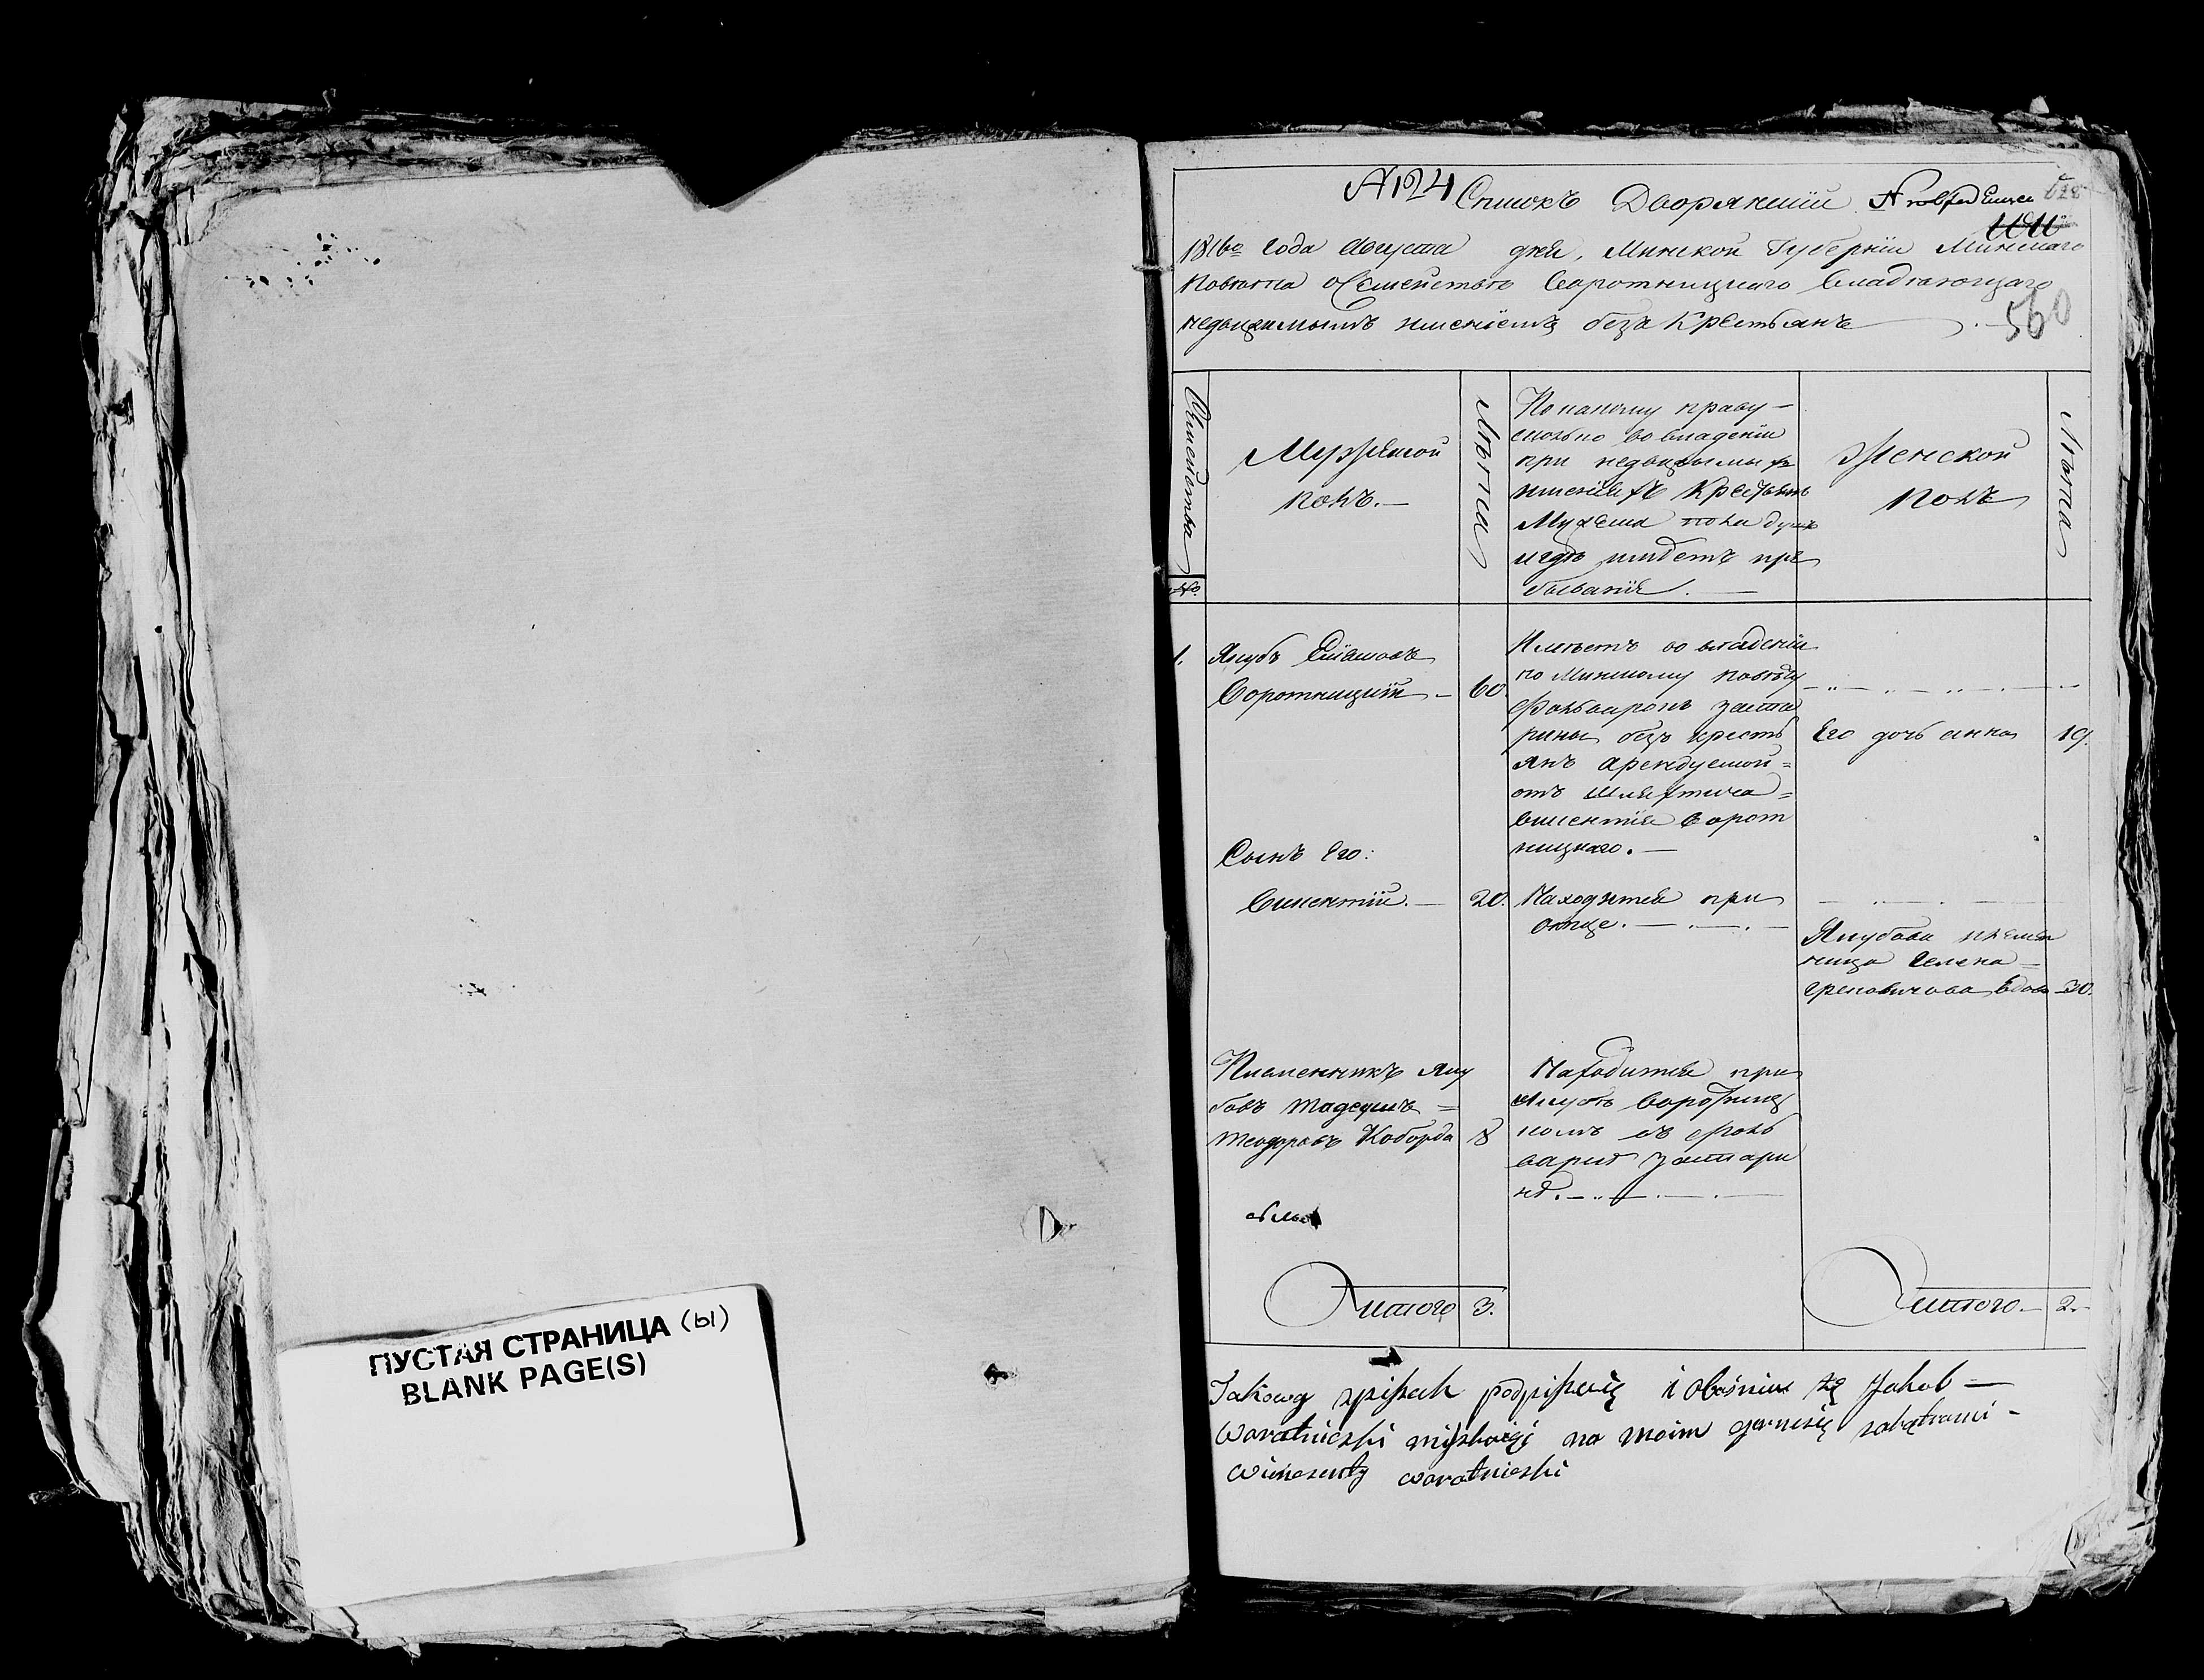 ПУСТАЯ СТРАНИЦА (ы)
BLANK PAGE(S)
А124 Списокъ Дворянскій
1816го года Августа дня, Минской Губерніи Минскаго
Повѣта о Семействѣ Воротницкаго Владѣющаго
недвижимымъ имѣніемъ безъ Крестьянъ
560
Семейства
№.
Мужеской
полъ.—
Лѣта
По какому праву—
сколько во владѣніи
при недвижимыхъ
имѣніяхъ Крестьянъ
Мужеска пола душъ
и гдѣ имѣетъ пре
бываніе.—
Женской
полъ
Лѣта
1.
Якубъ
Воротницкій —
60.
Имѣетъ во владѣніи
по Минскому повѣту
Фольваркъ заста
рины безъ кресть
янъ арендуемой=
отъ шляхтича=
викентія ворот
ницкаго.—
Его дочь анна
19.
Сынъ Его:
Викентій.—
20.
Находится при
отце.—
Якубова племя
ница Гелена—
вдова
30.
Племенникъ Яку
бовъ Тадеушъ=
Теодоровъ Коборда
8
Находится при
Якубѣ воротниц
комъ въ фоль
варкѣ застари
нѣ.—
Итого
3.
Итого.—
2.—
Takowy spisek podpisuię i obośnim są Jakob—
Woratnicski na moim
Wincenty woratnicski